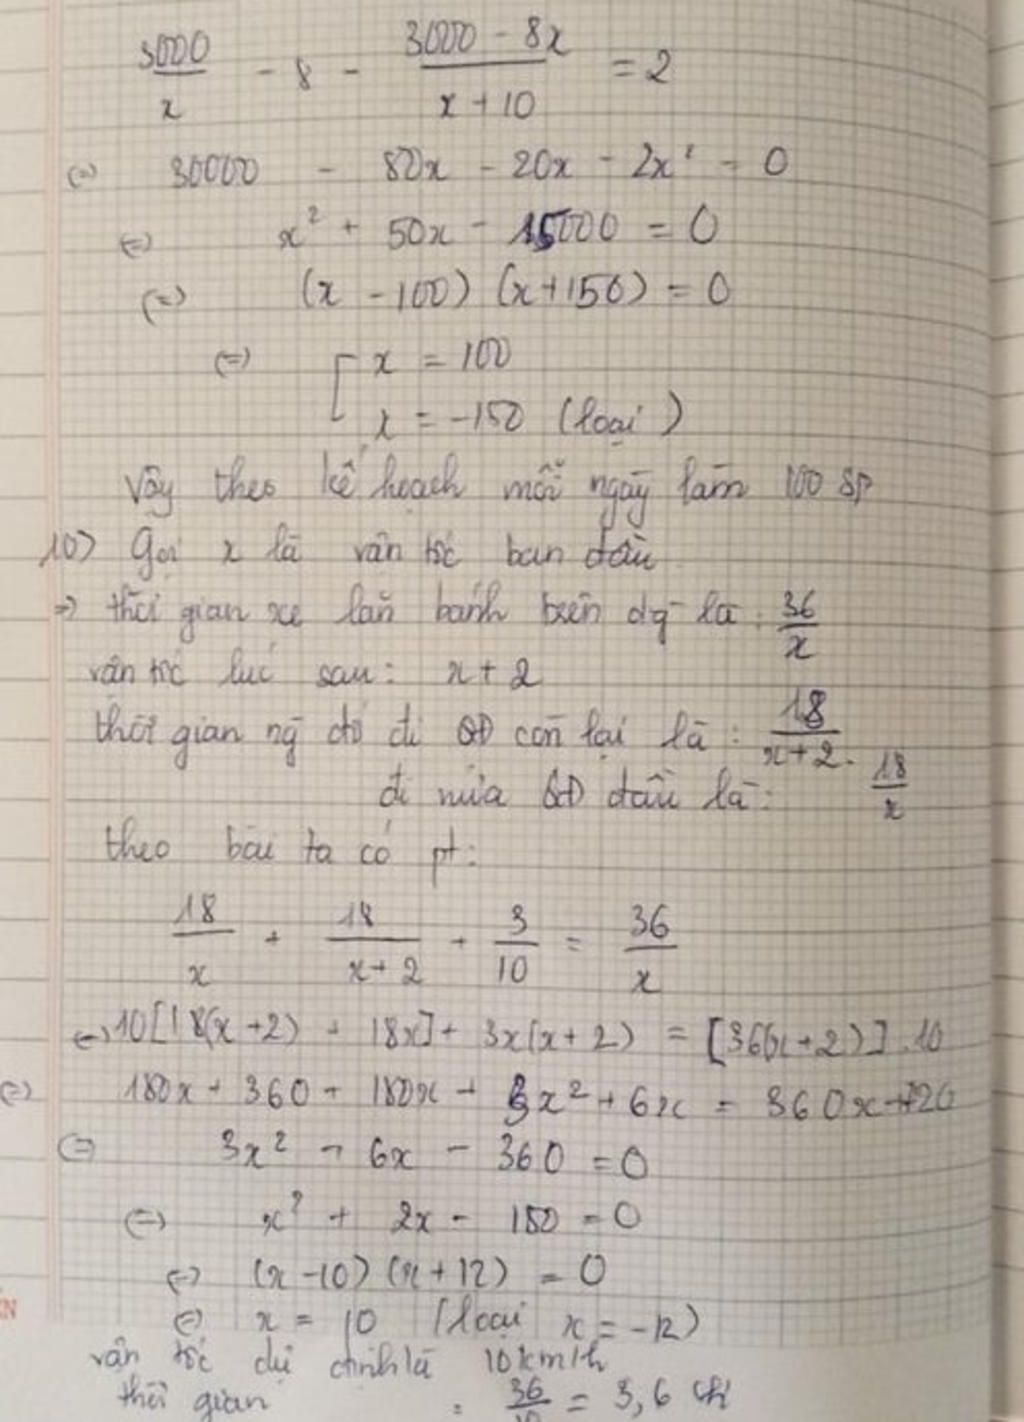 3000/x - 8 - (3000 - 8x)/(x + 10) = 2
(=) 30000 - 80x - 20x - 2x² = 0
(=) x² + 50x - 15000 = 0
(=) (x - 100) (x + 150) = 0
(=) [ x = 100
x = -150 (loại)
Vậy theo kế hoạch mỗi ngày làm 100 sp
10) Gọi x là vân tốc ban đầu
=> thời gian xe lăn bánh trên dg là : 36/x
vân tốc lúc sau : x + 2
thời gian ng đó đi QĐ còn lại là : 18/(x+2).
đi nửa QĐ đầu là : 18/x
theo bài ta có pt :
18/x + 18/(x+2) + 3/10 = 36/x
(=) 10[18(x+2) + 18x] + 3x(x+2) = [36(x+2)].10
(=) 180x + 360 + 180x + 3x² + 6x = 360x + 720
(=) 3x² + 6x - 360 = 0
(=) x² + 2x - 120 = 0
(=) (x - 10) (x + 12) = 0
(=) x = 10 (loại x = -12)
vân tốc dự định là 10km/h
thời gian : 36/10 = 3,6